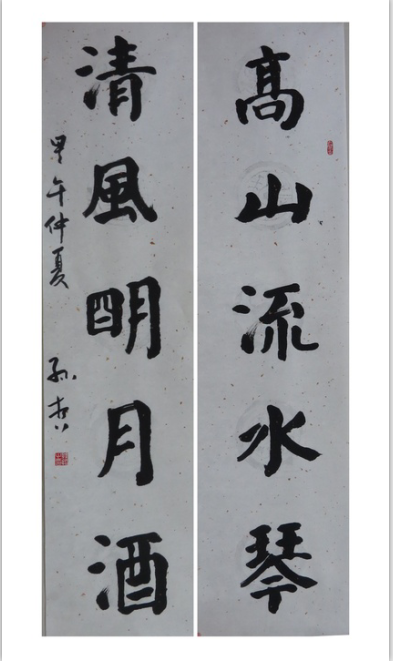 高山流水琴
清風明月酒
甲午仲夏